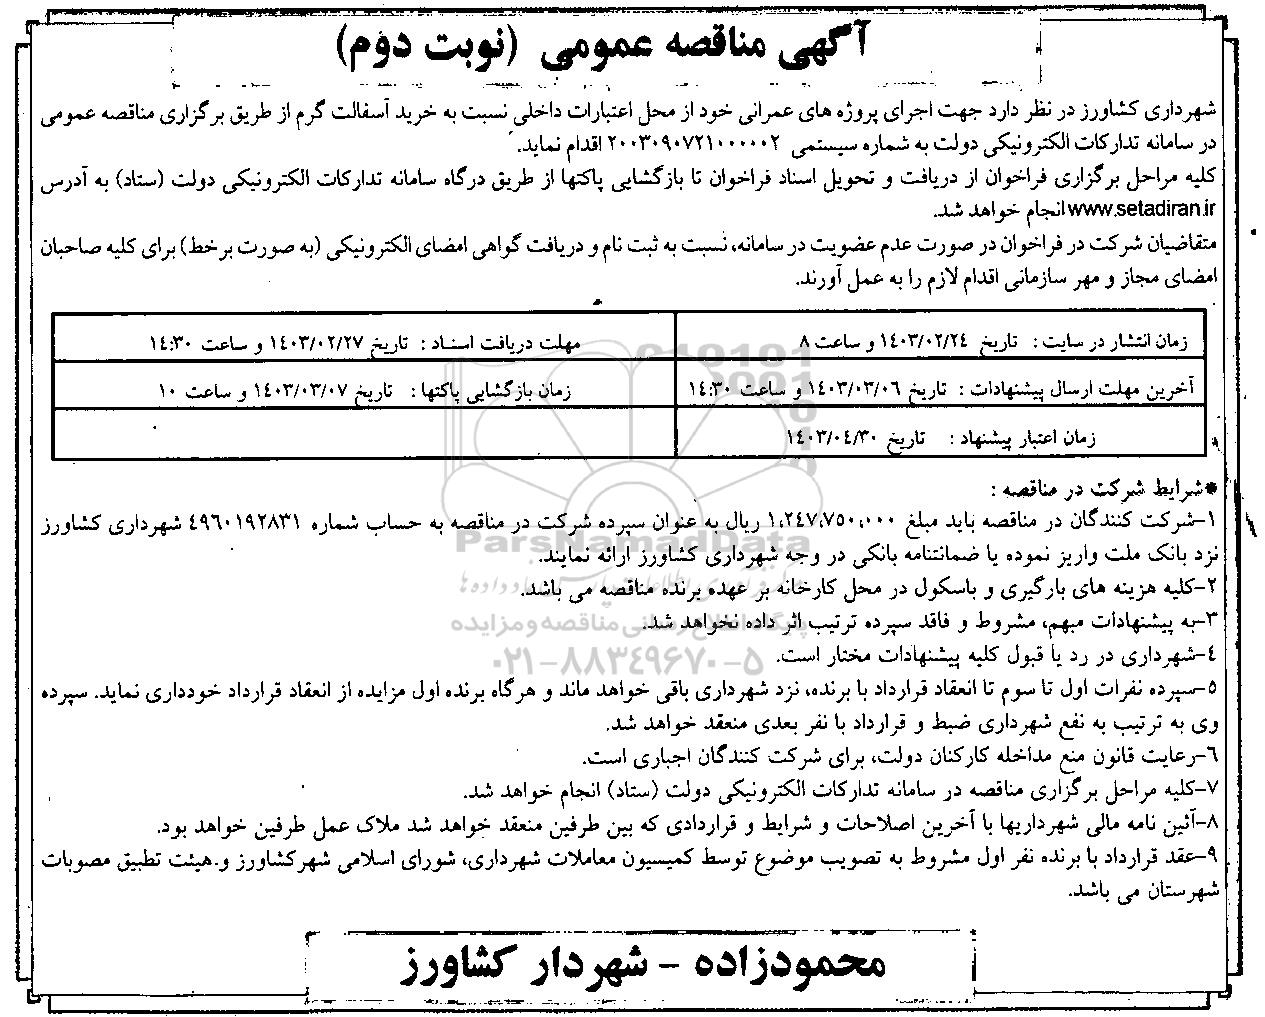 آگهی مناقصه عمومی (نوبت دوم)
شهرداری کشاورز در نظر دارد جهت اجرای پروژه های عمرانی خود از محل اعتبارات داخلی نسبت به خرید آسفالت گرم از طریق برگزاری مناقصه عمومی
در سامانه تدارکات الکترونیکی دولت به شماره سیستمی ۲۰۰۳۰۹۰۷۲۱۰۰۰۰۰۲ اقدام نماید.
کلیه مراحل برگزاری فراخوان از دریافت و تحویل اسناد فراخوان تا بازگشایی پاکتها از طریق درگاه سامانه تدارکات الکترونیکی دولت (ستاد) به آدرس
www.setadiran.ir انجام خواهد شد.
متقاضیان شرکت در فراخوان در صورت عدم عضویت در سامانه، نسبت به ثبت نام و دریافت گواهی امضای الکترونیکی (به صورت برخط) برای کلیه صاحبان
امضای مجاز و مهر سازمانی اقدام لازم را به عمل آورند.
زمان انتشار در سایت : تاریخ ۱۴۰۳/۰۲/۲۴ و ساعت ۸
مهلت دریافت اسناد : تاریخ ۱۴۰۳/۰۲/۲۷ و ساعت ۱۴:۳۰
آخرین مهلت ارسال پیشنهادات : تاریخ ۱۴۰۳/۰۳/۰۶ و ساعت ۱۴:۳۰
زمان بازگشایی پاکتها : تاریخ ۱۴۰۳/۰۳/۰۷ و ساعت ۱۰
زمان اعتبار پیشنهاد : تاریخ ۱۴۰۳/۰۴/۳۰
*شرایط شرکت در مناقصه :
۱-شرکت کنندگان در مناقصه باید مبلغ ۱،۲۴۷،۷۵۰،۰۰۰ ریال به عنوان سپرده شرکت در مناقصه به حساب شماره ۴۹۶۰۱۹۲۸۳۱ شهرداری کشاورز
نزد بانک ملت واریز نموده یا ضمانتنامه بانکی در وجه شهرداری کشاورز ارائه نمایند.
۲-کلیه هزینه های بارگیری و باسکول در محل کارخانه بر عهده برنده مناقصه می باشد.
۳-به پیشنهادات مبهم، مشروط و فاقد سپرده ترتیب اثر داده نخواهد شد.
۴-شهرداری در رد یا قبول کلیه پیشنهادات مختار است.
۵-سپرده نفرات اول تا سوم تا انعقاد قرارداد با برنده، نزد شهرداری باقی خواهد ماند و هرگاه برنده اول مزایده از انعقاد قرارداد خودداری نماید. سپرده
وی به ترتیب به نفع شهرداری ضبط و قرارداد با نفر بعدی منعقد خواهد شد.
۶-رعایت قانون منع مداخله کارکنان دولت، برای شرکت کنندگان اجباری است.
۷-کلیه مراحل برگزاری مناقصه در سامانه تدارکات الکترونیکی دولت (ستاد) انجام خواهد شد.
۸-آئین نامه مالی شهرداریها با آخرین اصلاحات و شرایط و قراردادی که بین طرفین منعقد خواهد شد ملاک عمل طرفین خواهد بود.
۹-عقد قرارداد با برنده نفر اول مشروط به تصویب موضوع توسط کمیسیون معاملات شهرداری، شورای اسلامی شهرکشاورز و هیئت تطبیق مصوبات
شهرستان می باشد.
محمودزاده - شهردار کشاورز
ParsNamadData
پایگاه اطلاع رسانی مناقصه و مزایده
۰۲۱-۸۸۳۴۹۶۷۰-۵